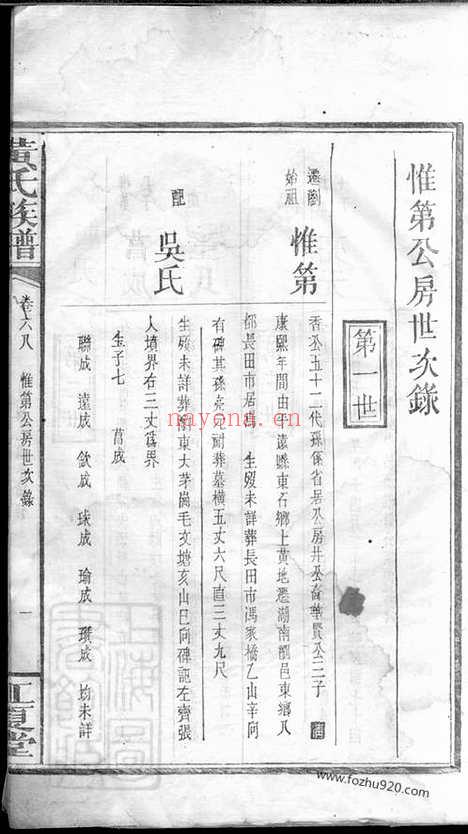 惟第公房世次錄
第一世
遷瀏
始祖
惟第
香公五十二代孫係省居公房井公裔華賢公三子
康熙年間由平遠縣東石鄉上黃地遷湖南瀏邑東鄉八
都長田市居焉 生歿未詳葬長田市馮家橋乙山辛向
有碑其孫亮元附葬墓橫五丈六尺直三丈九尺
配
吳氏
生歿未詳葬瀏東大茅崗毛坟塘亥山巳向碑記左齊張
人墳界右三丈爲界
生子七 菖成
聯成 遠成 欽成 球成 瑜成 瓚成 均未詳
黃氏族譜
卷六八 惟第公房世次錄
一
江夏堂
nayona.cn
www.fozhu920.com